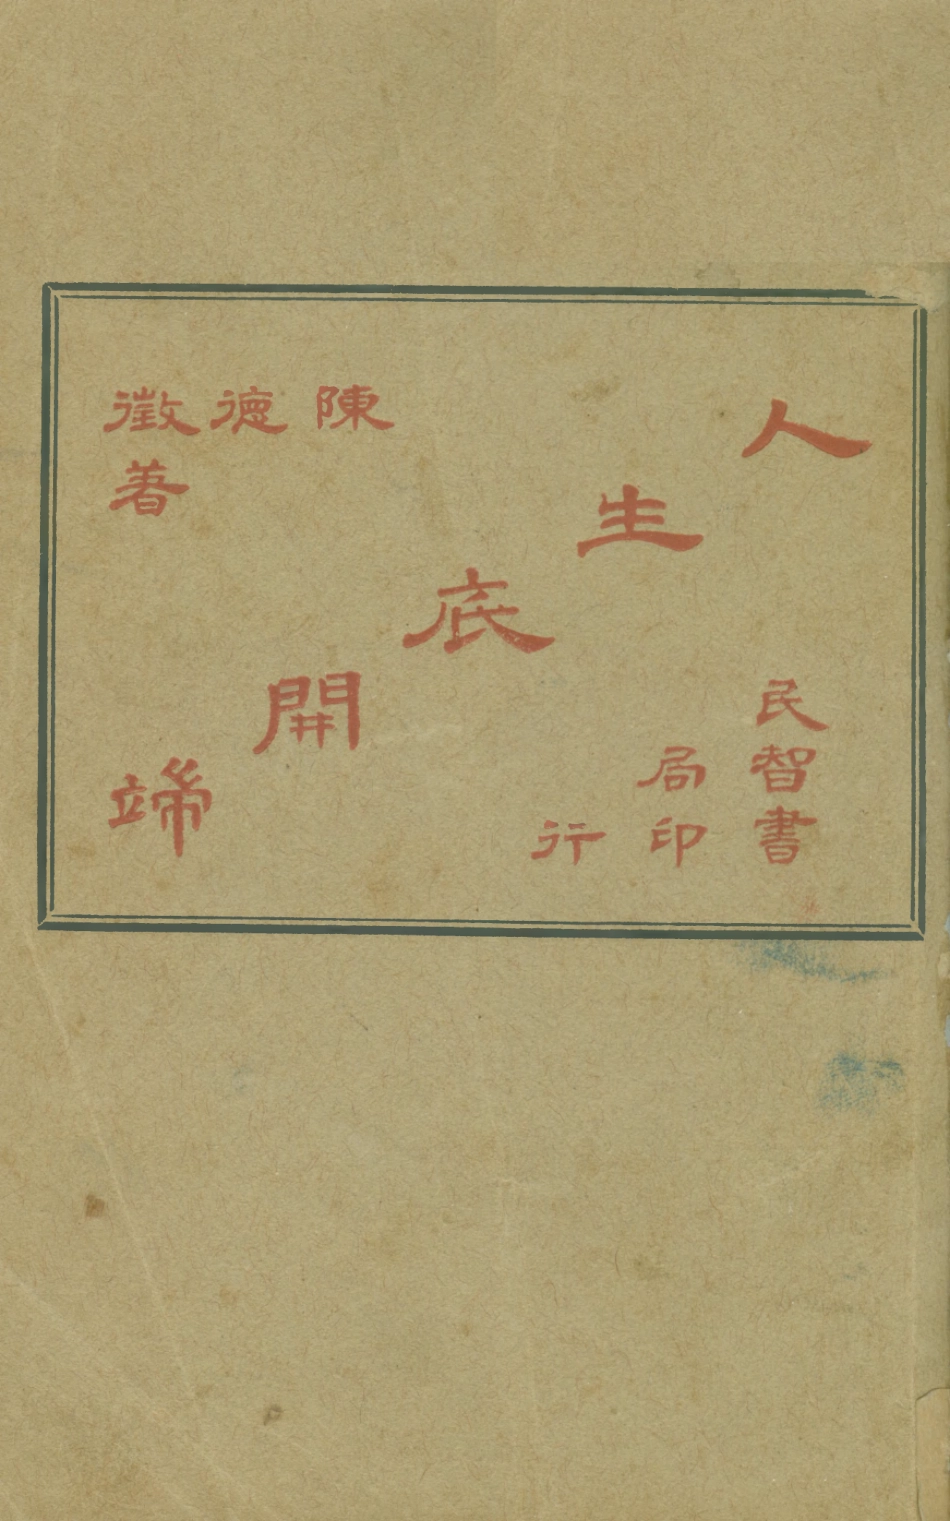 人生底開端
陳德徵
著
民智書
局印
行